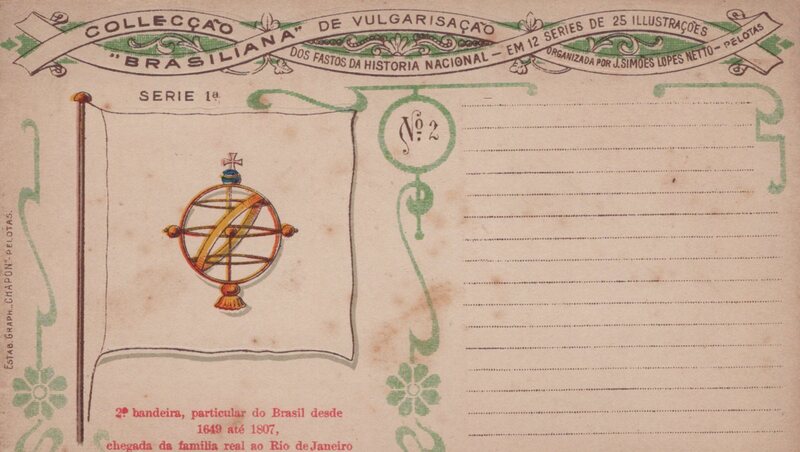 COLLECÇÃO "BRASILIANA" DE VULGARISAÇÃO
DOS FASTOS DA HISTORIA NACIONAL — EM 12 SERIES DE 25 ILLUSTRAÇÕES
ORGANIZADA POR J. SIMÕES LOPES NETTO — PELOTAS
SERIE 1ª
Nº 2
ESTAB. GRAPH. "CHAPON" - PELOTAS.
2ª bandeira, particular do Brasil desde
1649 até 1807,
chegada da familia real ao Rio de Janeiro